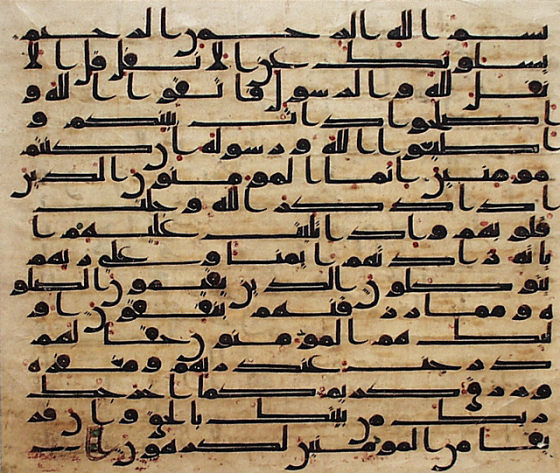 بسم الله الرحمن الرحيم
يسلونك عن الانفل قل الا
نفل لله والرسول فاتقوا الله و
اصلحوا ذات بينكم و
اطيعوا الله ورسوله ان كنتم
مومنين انما المومنون الذين
اذا ذكر الله وجلت
قلوبهم واذا تليت عليهم ا
يته زادتهم ايمنا وعلى ربهم
يتوكلون الذين يقيمون الصلو
ة ومما رزقنهم ينفقون او
لئك هم المومنون حقا لهم
درجت عند ربهم ومغفرة
ورزق كريم كما اخرجك
ربك من بيتك بالحق وان فر
يقا من المومنين لكرهون